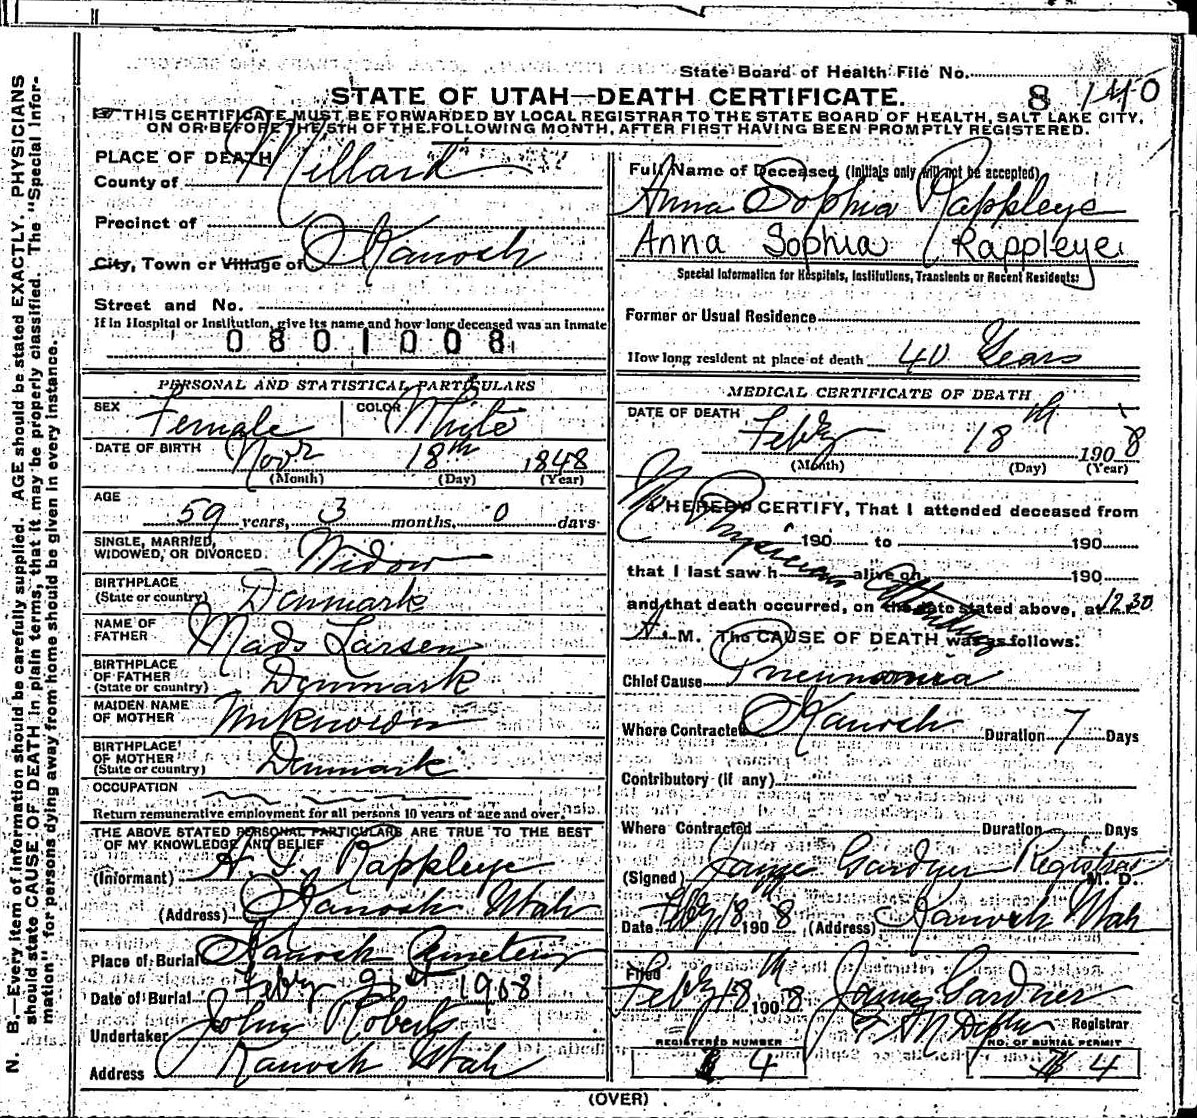 State Board of Health File No.
8 140
STATE OF UTAH—DEATH CERTIFICATE.
THIS CERTIFICATE MUST BE FORWARDED BY LOCAL REGISTRAR TO THE STATE BOARD OF HEALTH, SALT LAKE CITY,
ON OR BEFORE THE 5TH OF THE FOLLOWING MONTH, AFTER FIRST HAVING BEEN PROMPTLY REGISTERED.
N. B.—Every item of information should be carefully supplied. AGE should be stated EXACTLY. PHYSICIANS
should state CAUSE OF DEATH in plain terms, that it may be properly classified. The "Special Infor-
mation" for persons dying away from home should be given in every instance.
PLACE OF DEATH
County of Millard
Precinct of
City, Town or Village of Kanosh
Street and No.
If in Hospital or Institution, give its name and how long deceased was an Inmate
0801008
PERSONAL AND STATISTICAL PARTICULARS
SEX Female COLOR White
DATE OF BIRTH Novr 18th 1848
(Month) (Day) (Year)
AGE
59 years, 3 months, 0 days
SINGLE, MARRIED,
WIDOWED, OR DIVORCED Widow
BIRTHPLACE
(State or country) Denmark
NAME OF
FATHER Mads Larsen
BIRTHPLACE
OF FATHER
(State or country) Denmark
MAIDEN NAME
OF MOTHER Unknown
BIRTHPLACE
OF MOTHER
(State or country) Denmark
OCCUPATION
Return remunerative employment for all persons 10 years of age and over.
THE ABOVE STATED PERSONAL PARTICULARS ARE TRUE TO THE BEST
OF MY KNOWLEDGE AND BELIEF
(Informant) Rappleye
(Address) Kanosh Utah
Place of Burial Kanosh Cemetery
Date of Burial Feby 21st 1908
Undertaker John Roberts
Address Kanosh Utah
Full Name of Deceased (Initials only will not be accepted)
Anna Sophia Rappleye
Anna Sophia Rappleye
Special Information for Hospitals, Institutions, Transients or Recent Residents:
Former or Usual Residence
How long resident at place of death 40 Years
MEDICAL CERTIFICATE OF DEATH
DATE OF DEATH
Feby 18th 1908
(Month) (Day) (Year)
No Physician Attending
I HEREBY CERTIFY, That I attended deceased from
190 to 190
that I last saw h alive on 190
and that death occurred, on the date stated above, at 12 30
A. M. The CAUSE OF DEATH was as follows:
Chief Cause Pneumonia
Where Contracted Kanosh Duration 7 Days
Contributory (if any)
Where Contracted Duration Days
(Signed) James Gardner Registrar M. D.
Date Feby 18th 1908 (Address) Kanosh Utah
Filed
Feby 18th 1908 James Gardner
Registrar
REGISTERED NUMBER
4
NO. OF BURIAL PERMIT
4
(OVER)